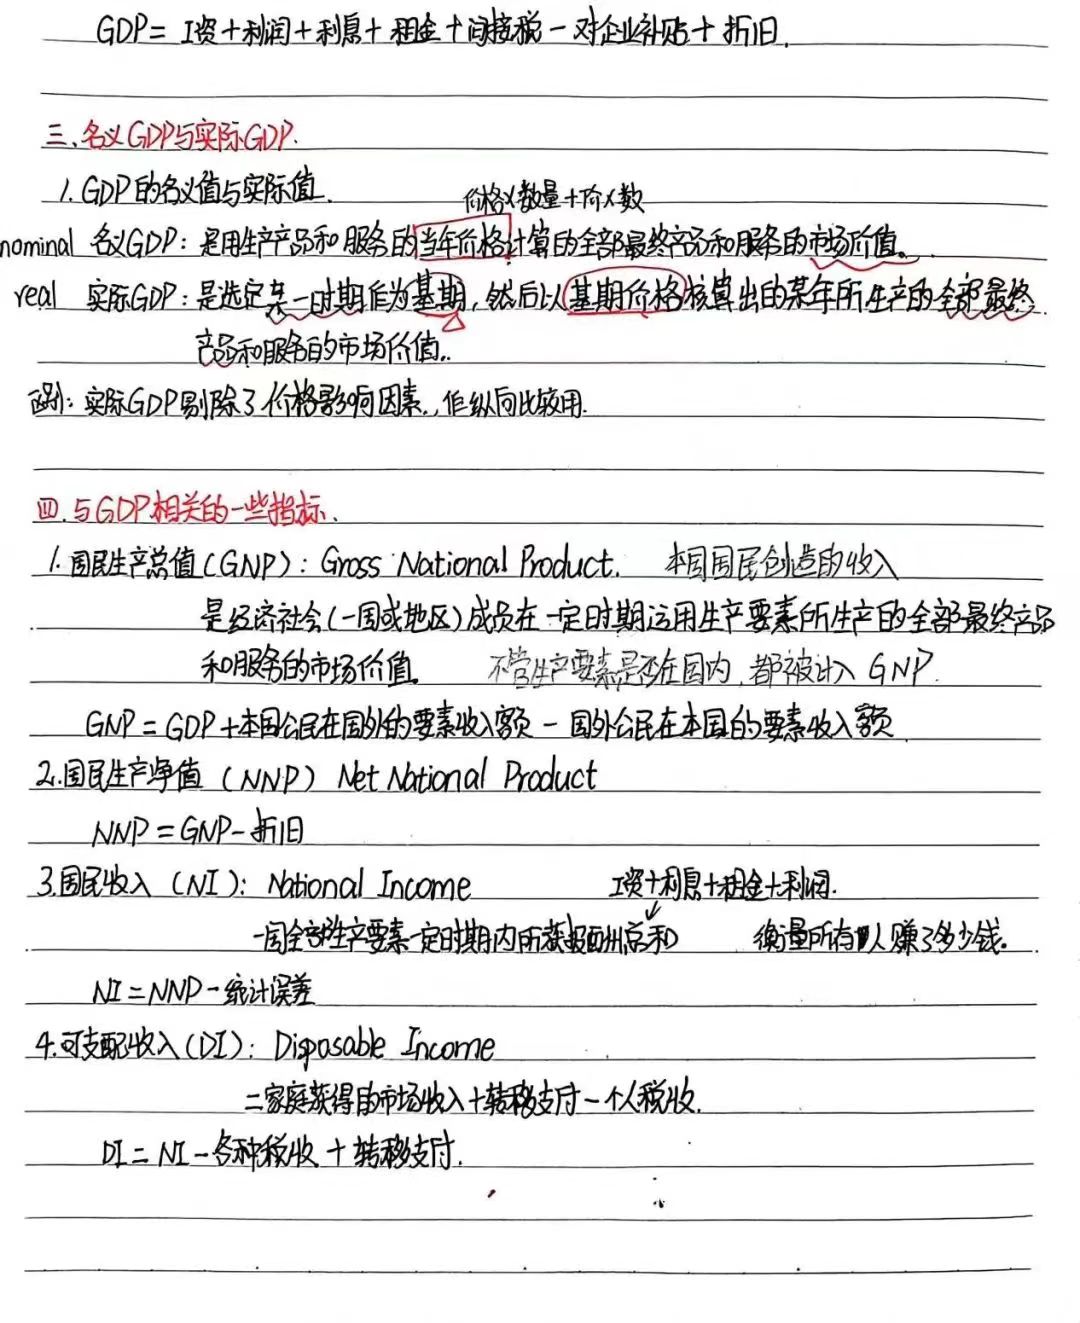 GDP = 工资+利润+利息+租金+间接税-对企业补贴+折旧.
三、名义GDP与实际GDP.
1. GDP的名义值与实际值.
价格×数量+价×数
nominal 名义GDP：是用生产产品和服务的当年价格计算的全部最终产品和服务的市场价值。
real 实际GDP：是选定某一时期作为基期,然后以基期价格核算出的某年所生产的全部最终
产品和服务的市场价值.
区别：实际GDP剔除了价格影响因素.,作纵向比较用.
四.与GDP相关的一些指标.
1.国民生产总值(GNP)：Gross National Product. 本国国民创造的收入
是经济社会(一国或地区)成员在一定时期运用生产要素所生产的全部最终产品
和服务的市场价值. 不管生产要素是否在国内,都被计入GNP.
GNP=GDP+本国公民在国外的要素收入额-国外公民在本国的要素收入额
2.国民生产净值 (NNP) Net National Product
NNP=GNP-折旧
3.国民收入 (NI)：National Income 工资+利息+租金+利润.
一国全部生产要素一定时期内所获报酬总和 衡量所有人赚了多少钱.
NI=NNP-统计误差
4.可支配收入(DI)：Disposable Income
=家庭获得的市场收入+转移支付-个人税收.
DI=NI-各种税收+转移支付.